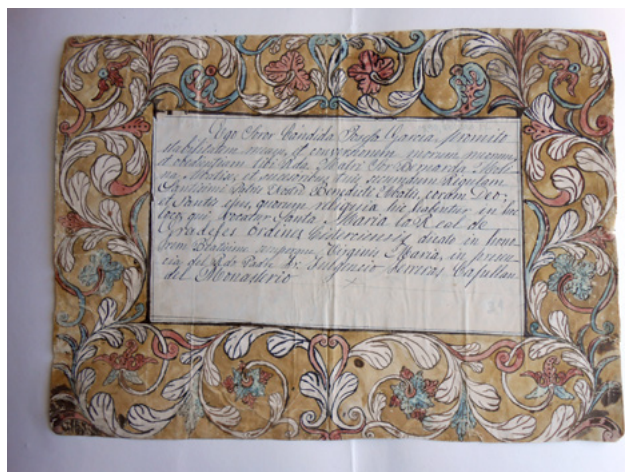 Ego Sror Candida Garcia, promito
stabilitatem meam, et conversionem morum meorum,
et obedientiam tibi Rda. Matri Sor Bernarda
Abatise, et secundum Regulam
Santissimi Patris Nostri Benedicti Abatis, coram Deo,
et Santis ejus, quorum reliquia hic habentur, in huc
loco, qui vocatur Santa Maria la Real de
Gradefes ordinis Cisterciensis, dicato in hono
rem Beatisime semperque Virginis Maria, in presen
cia del Rdo Padre Dr. Fulgencio Capellan
del Monasterio